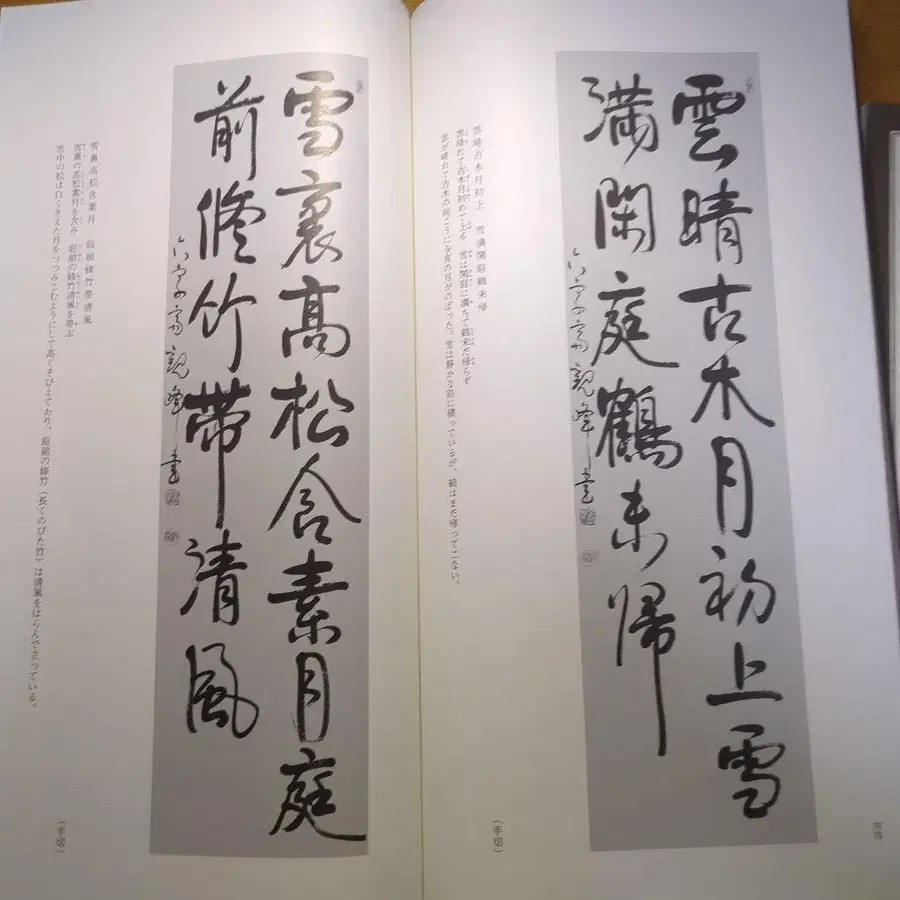 雲晴古木月初上雪
満閑庭鶴未帰
観峰書
雲晴古木月初上　雪満閑庭鶴未帰
雲晴れて古木月初めて上る　雪は閑庭に満ちて鶴未だ帰らず
雲が晴れて古木の向こうに今宵の月がのぼった。雪は静かな庭に積っているが、鶴はまだ帰ってこない。
（半切）
雪裏高松含素月庭
前脩竹帯清風
観峰書
雪裏高松含素月　庭前脩竹帯清風
雪裏の高松素月を含み　庭前の脩竹清風を帯ぶ
雪中の松は白くさえた月をつつみこむようにして高くそびえており、庭前の脩竹（長くのびた竹）は清風をはらんで立っている。
（半切）